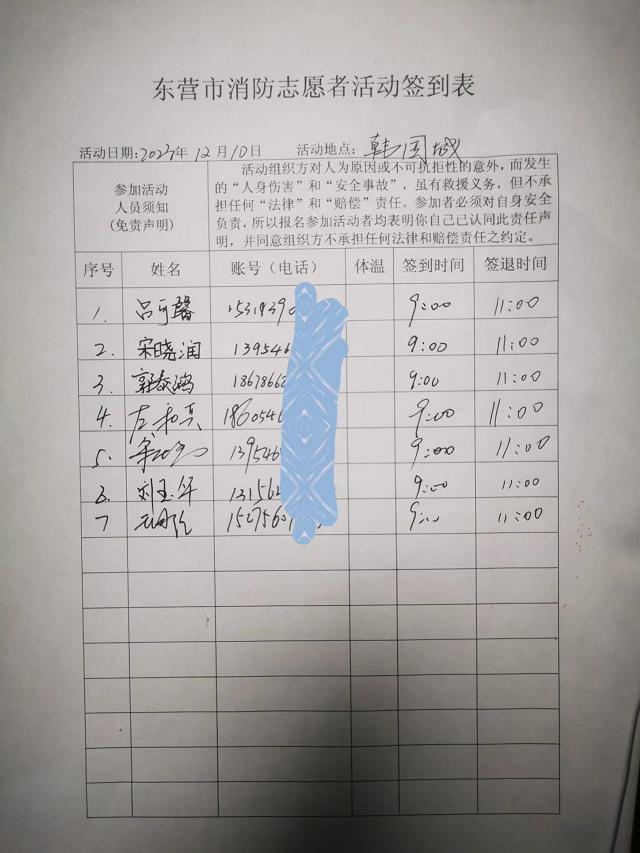 东营市消防志愿者活动签到表
活动日期:2023年12月10日 活动地点:韩国城
参加活动
人员须知
(免责声明)
活动组织方对人为原因或不可抗拒性的意外,而发生
的“人身伤害”和“安全事故”,虽有救援义务,但不承
担任何“法律”和“赔偿”责任。参加者必须对自身安全
负责,所以报名参加活动者均表明你自己已认同此责任声
明,并同意组织方不承担任何法律和赔偿责任之约定。
序号 姓名 账号(电话) 体温 签到时间 签退时间
1. 吕可馨 1531390 9:00 11:00
2. 宋晓润 139546 9:00 11:00
3. 郭泰鸿 1867866 9:00 11:00
4. 左和真 1860546 9:00 11:00
5. 139546 9:00 11:00
6. 刘玉华 131562 9:00 11:00
7 1507560 9:00 11:00